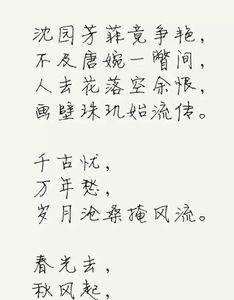 沈园芳菲竞争艳，
不及唐婉一瞥间，
人去花落空余恨，
画壁珠玑始流传。
千古忧，
万年愁，
岁月沧桑掩风流。
春光去，
秋风起，